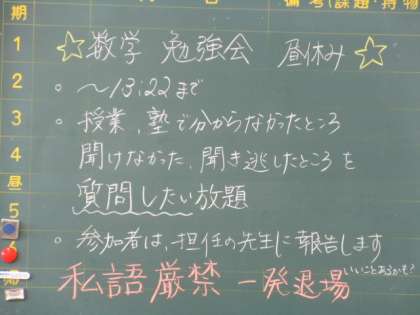 期
備考(課題・持物
1
2
3
4
昼
5
6
☆数学 勉強会 昼休み☆
。～13:22まで
。授業、塾で分からなかったところ
聞けなかった、聞き逃したところを
質問したい放題
。参加者は、担任の先生に報告します
私語厳禁 一発退場
いいことあるかも?